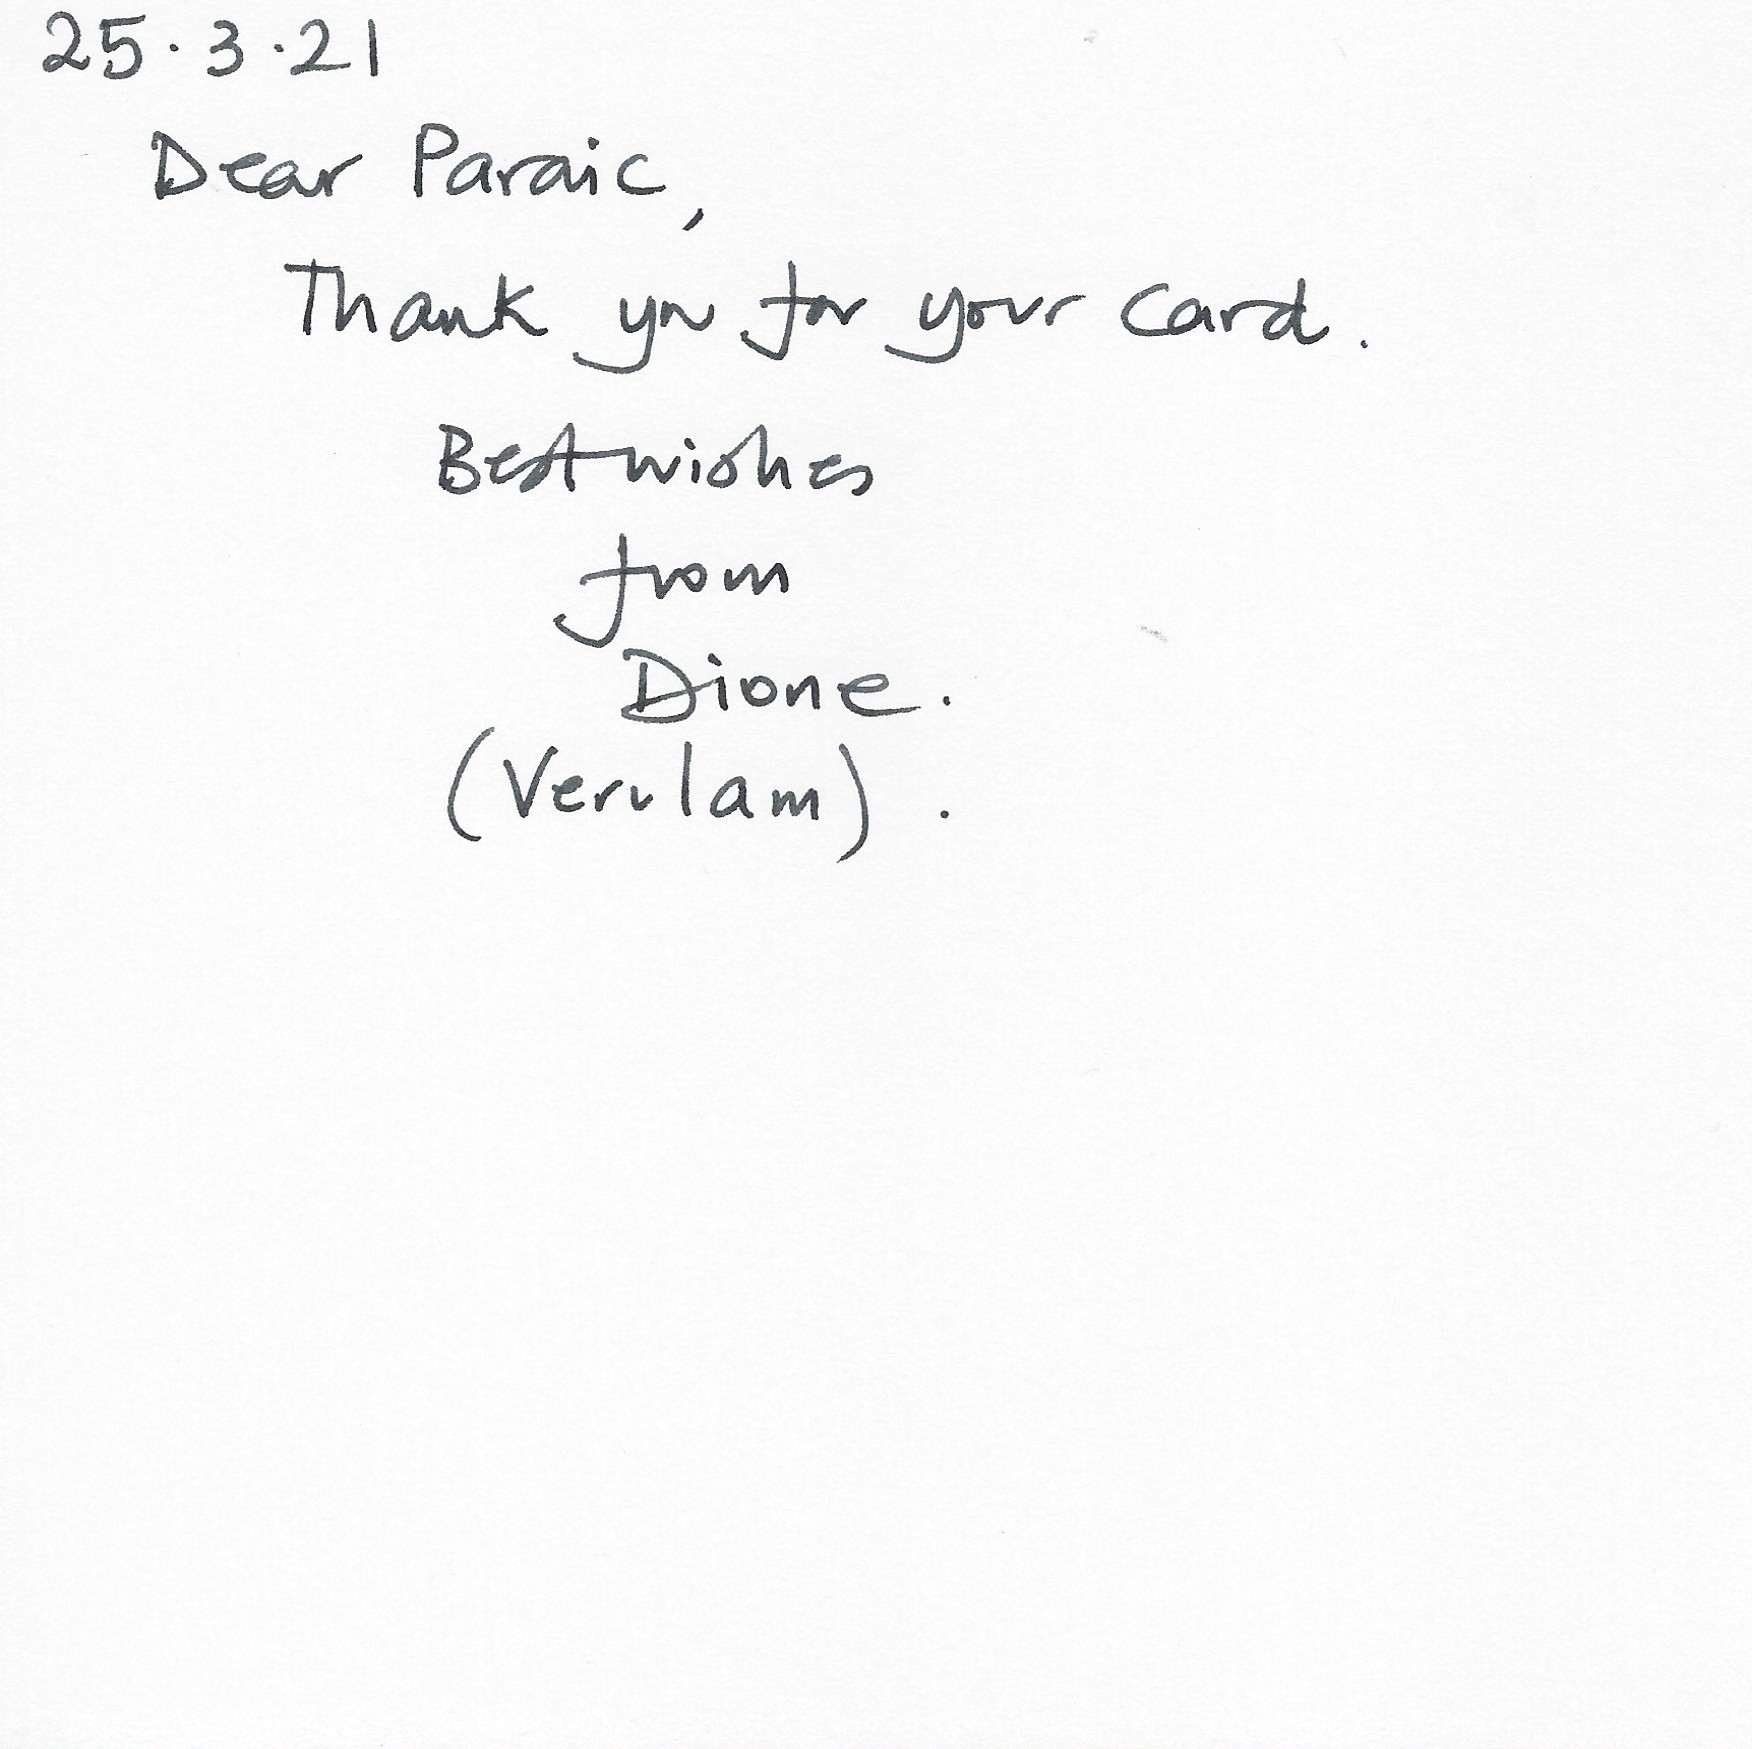 25.3.21
Dear Paraic,
Thank you for your card.
Best wishes
from
Dione.
(Verulam).